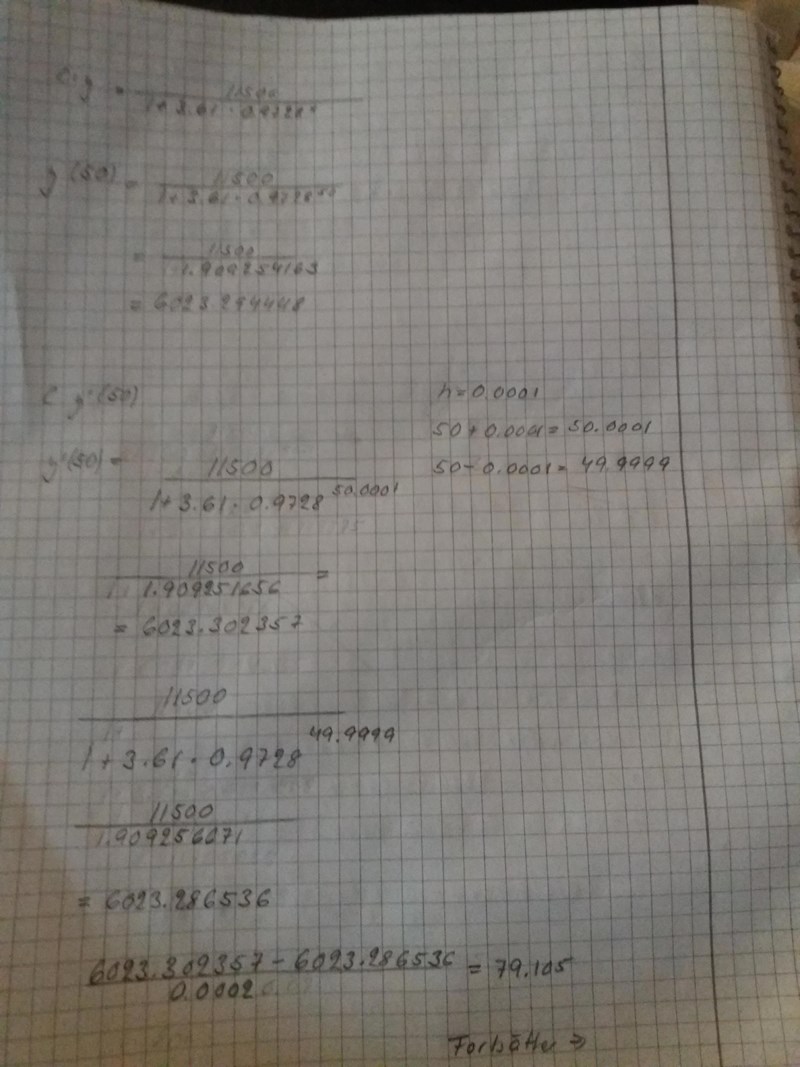 y = 11500 / 1 + 3.61 · 0.9728
y(50) = 11500 / 1 + 3.61 · 0.9728
= 11500 / 1.909254163
= 6023.294448
C y'(50)
h = 0.0001
50 + 0.0001 = 50.0001
50 - 0.0001 = 49.9999
y'(50) = 11500 / 1 + 3.61 · 0.9728^50.0001
11500 / 1.909251656 =
= 6023.302357
11500 / 1 + 3.61 · 0.9728^49.9999
11500 / 1.909256671
= 6023.286536
6023.302357 - 6023.286536 / 0.0002 = 79.105
Fortsätter ⇒